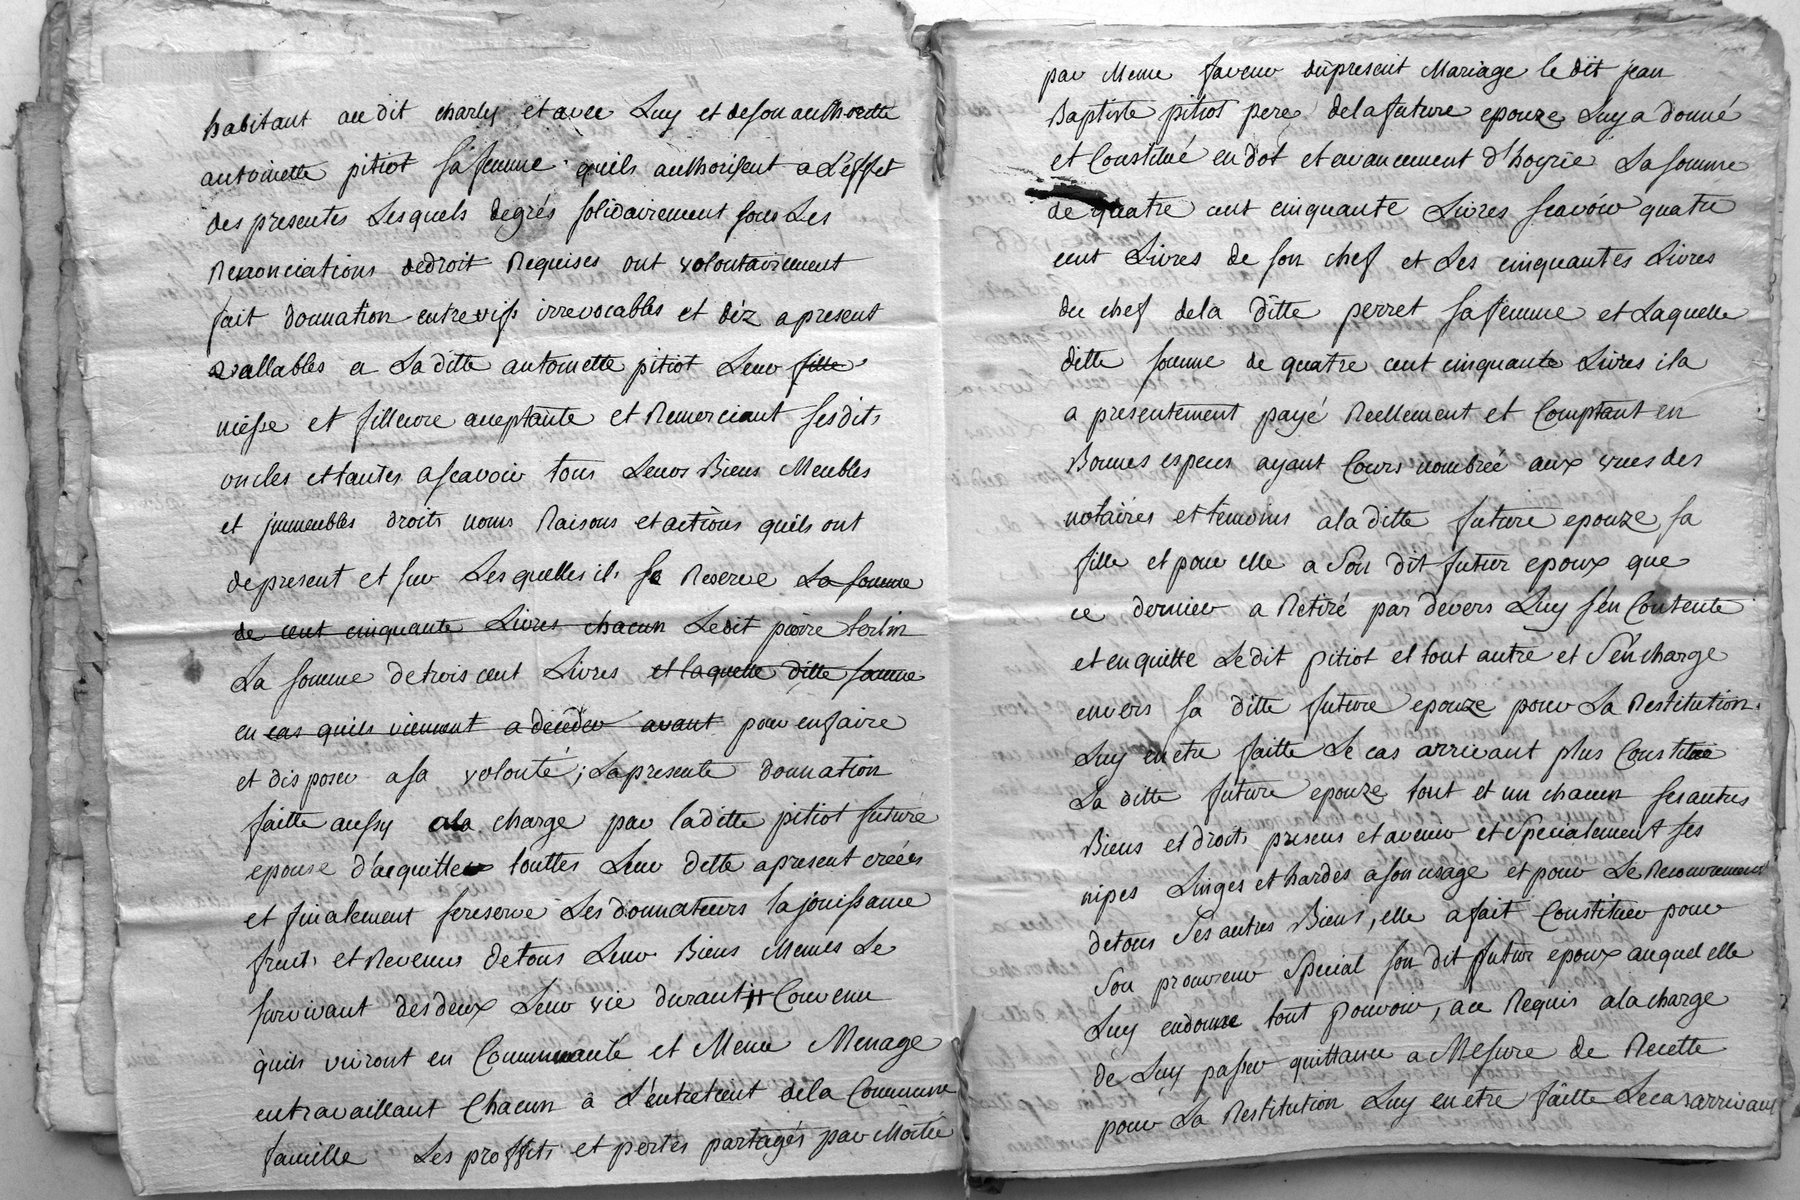 habitant au dit charly et avec Luy et deson authorité
antoinette pitiot sa femme quils authorisent a L'effet
des presentes Lesquels degrés solidairement sous Les
Renonciations dedroit Requises ont volontairement
fait donnation entrevifs irrevocables et déz apresent
vallables a La ditte antoinette pitiot Leur fille
niesse et filleure acceptante et Remerciant sesdits
oncles et tantes ascavoir tous Leurs Biens Meubles
et jmmeubles droits noms Raisons et actions quils ont
depresent et sur Lesquelles ils se Reserve La somme
de cent cinquante Livres chacun Ledit pierre
La somme detrois cent Livres et laquelle ditte somme
en cas quils viennent a déceder avant pour enfaire
et disposer asa volonté; Lapresente donnation
faitte aussy ala charge par laditte pitiot future
epouse d'acquitter touttes Leur dette apresent créées
et finalement sereserve Les donnateurs lajouissance
fruits et Revenus detous Leur Biens Memes Le
survivant desdeux Leur vie durant Convenu
quils vivront en Communauté et Meme Menage
entravaillant Chacun à L'entretient dela Commune
famille Les proffits et pertes partagés par Moitié
par Meme faveur dupresent Mariage le dit jean
Baptiste pitiot pere delafuture epouze Luy a donné
et Constitué en dot et avancement d'hoyrie La somme
de quatre cent cinquante Livres scavoir quatre
cent Livres de son chef et Les cinquantes Livres
du chef dela ditte perret sa femme et Laquelle
ditte somme de quatre cent cinquante Livres ila
a presentement payé Reellement et Comptant en
Bonnes especes ayant Cours nombrée aux vues des
notaires et temoins ala ditte future epouze sa
fille et pour elle a Son dit futur epoux que
ce dernier a Retiré par devers Luy s'en Contente
et enquitte Ledit pitiot et tout autre et S'en charge
envers sa ditte future epouze pour La Restitution
Luy enetre faitte Le cas arrivant plus Constitue
La ditte future epouze tout et un chacun ses autres
Biens et droits presens et avenir et Specialement ses
nipes Linges et hardes ason usage et pour Le Recouvrement
detous Ses autres Biens, elle afait Constituer pour
Son procureur Special son dit futur epoux auquel elle
Luy endonne tout pouvoir, ace Requis ala charge
de Luy passer quittance a Mesure de Recette
pour La Restitution Luy en etre faitte Lecas arrivant